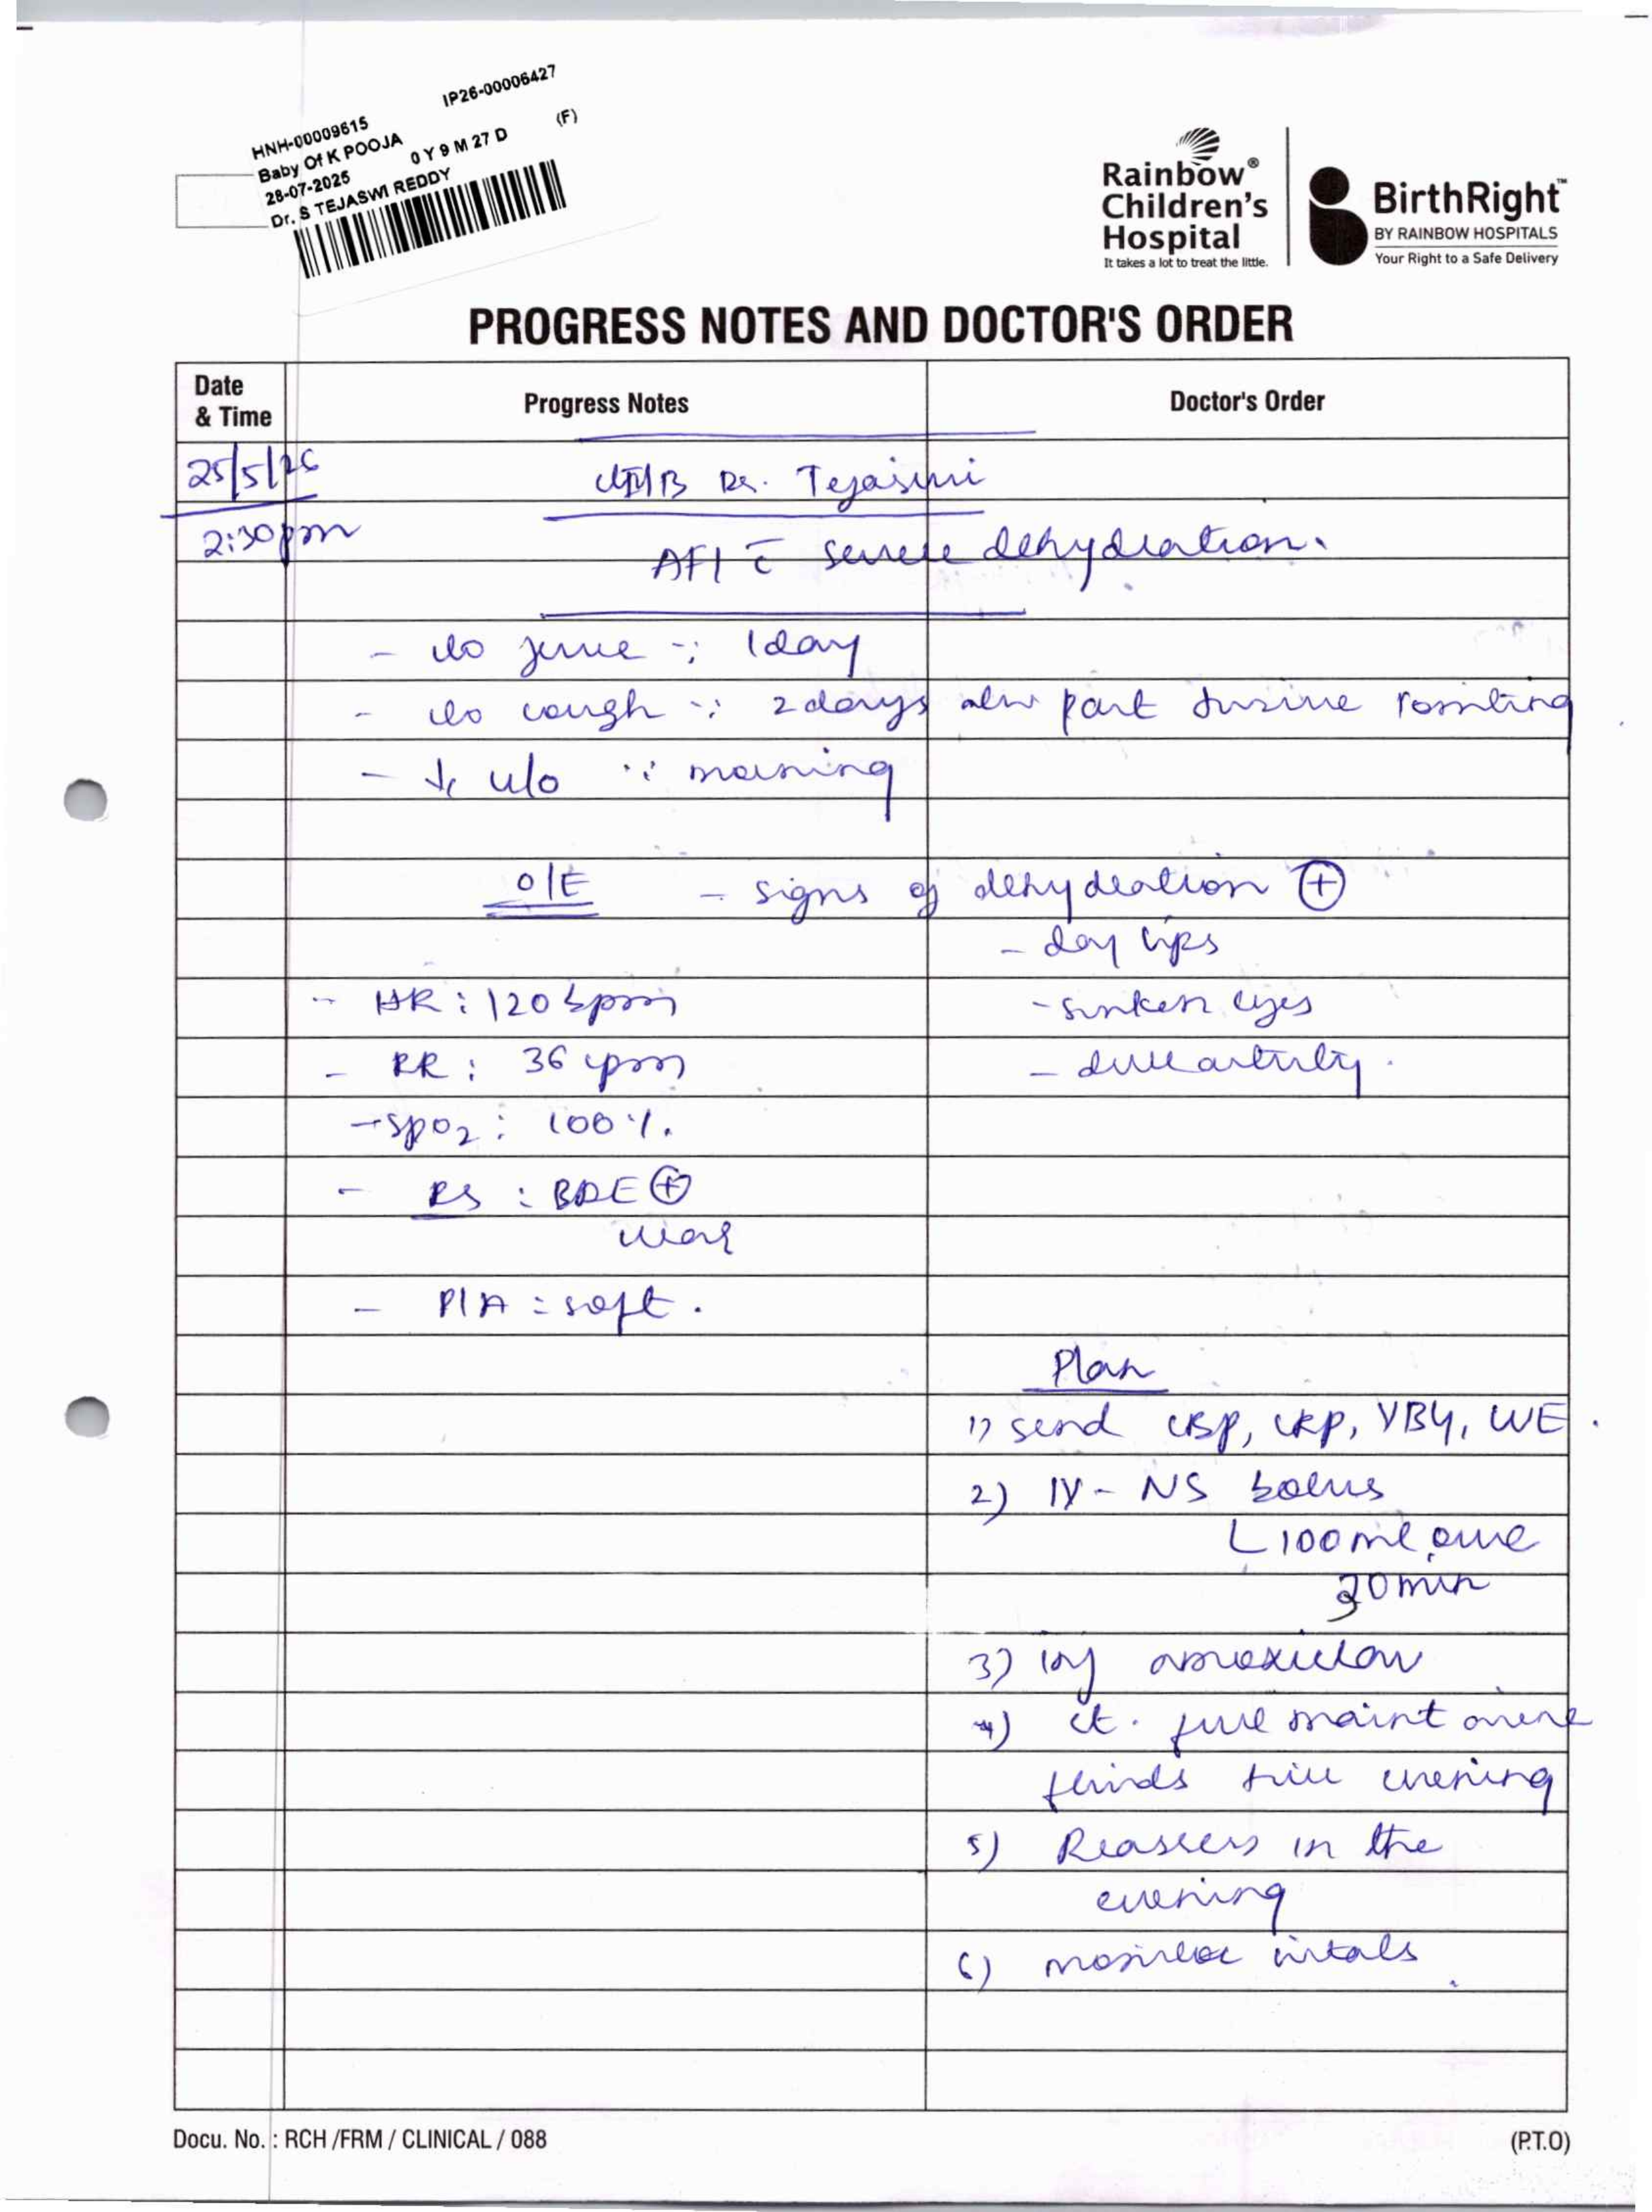 IP26-00006427
HNH-00009615
Baby Of K POOJA 0 Y 9 M 27 D (F)
28-07-2025
Dr. S TEJASWI REDDY
Rainbow®
Children's
Hospital
It takes a lot to treat the little.
BirthRight™
BY RAINBOW HOSPITALS
Your Right to a Safe Delivery
PROGRESS NOTES AND DOCTOR'S ORDER
Date
& Time
Progress Notes
Doctor's Order
25/5/26
Dr. Tejaswi
2:30pm
AFI c̄ severe dehydration.
- c/o fever ∵ 1day
- c/o cough ∵ 2days post vomiting
- ↓ u/o ∵ morning
O/E - signs of dehydration ⊕
- dry lips
- HR : 120 bpm - sunken eyes
- RR : 36 cpm - dull activity.
- SpO2 : 100 %.
- RS : BAE ⊕
- P/A : soft.
Plan
1) send CBP, CRP, VBG,
2) IV - NS bolus
100ml over
30min
3) Inj amoxiclav
4) ct. full maintenance
fluids till evening
5) Reassess in the
evening
6) monitor vitals.
Docu. No. : RCH /FRM / CLINICAL / 088
(P.T.O)